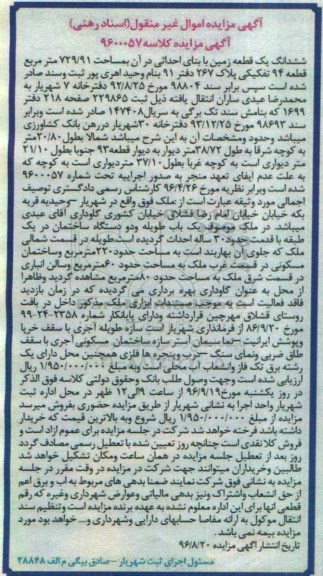 آگهی مزایده اموال غیر منقول(اسناد رهنی)
آگهی مزایده کلاسه ۹۶۰۰۰۵۷
ششدانگ یک قطعه زمین با بنای احداثی در آن بمساحت ۷۲۹/۹۱ متر مربع
قطعه ۹۴ تفکیکی پلاک ۲۶۷ دفتر ۹۱ بنام وحید اهری پور ثبت وسند صادر
شده است سپس برابر سند ۹۸۸۰۴ مورخ ۹۲/۸/۲۵ دفترخانه ۷ شهریار به
محمدرضا عبدی ساران انتقال یافته ذیل ثبت ۲۲۹۸۶۵ صفحه ۲۱۸ دفتر
۱۶۹۹ که بنامش سند تک برگی به سریال ۱۴۷۴۰۸ صادر شده است وبرابر
سند ۹۸۶۹۲ مورخ ۹۳/۱۲/۲۵ دفترخانه ۳۰ شهریار دررهن بانک کشاورزی
میباشد وحدود ومشخصات آن به این شرح میباشد شمالا بطول ۲۰/۸۰ متر
به کوچه شرقا به طول ۳۸/۷۲ متر دیوار به دیوار قطعه ۹۳ جنوبا بطول ۲۱/۱۰
متر دیواری است به کوچه غربا بطول ۳۷/۱۰ متردیواری است به کوچه که
به علت عدم ایفای تعهد منجر به صدور اجراییه تحت شماره ۹۶۰۰۰۵۷
شده است وبرابر نظریه مورخ ۹۶/۴/۲۶ کارشناس رسمی دادگستری توصیف
اجمالی مورد وثیقه عبارت است از ملک فوق واقع در شهریار -وحیدیه قریه
بکه خیابان خیابان امام رضا قشلاق خیابان کشوری گاوداری آقای عبدی
میباشد. در ملک موصوف یک باب طویله ودو دستگاه ساختمان در یک
طبقه با قدمت حدود ۳۰ ساله احداث گردیده است.طویله در قسمت شمالی
ملک که جلوی آن بهاربند است به مساحت حدود ۲۲۰مترمربع وساختمان
مسکونی در قسمت غرب ملک به مساحت حدود ۶۰متر مربع وسالن انباری
در قسمت شرق ملک به مساحت حدود ۸۰متر مربع مشاهده گردید وظاهرا
از محل به عنوان گاوداری بهره برداری می گردیده که در زمان بازدید
فاقد فعالیت است به موجب مستندات ابرازی ملک مذکور داخل در بافت
روستای قشلاق مهرچین قرارداشته ودارای پایانکار شماره ۲۳۵۸-۲۴-۹۹
مورخ ۸۶/۹/۲۰ از فرمانداری شهریار است سازه طویله آجری با سقف خرپا
وپوشش ایرانیت -نما سیمان آستر سازه ساختمان مسکونی آجری با سقف
طاق ضربی ونمای سنگ -درب وپنجره ها فلزی همچنین محل دارای یک
رشته برق تک فاز وانشعاب آب محلی است وبه مبلغ ۱/۹۵۰/۰۰۰/۰۰۰ ریال
ارزیابی شده است وجهت وصول طلب بانک وحقوق دولتی کلاسه فوق الذکر
در روز یکشنبه مورخ ۹۶/۹/۱۹ از ساعت ۹الی ۱۲ ظهر در محل اداره ثبت
شهریار واحد اجرا به نشانی شهریار از طریق مزایده حضوری بفروش میرسد
مزایده از مبلغ ۱/۹۵۰/۰۰۰/۰۰۰ ریال شروع وبه بالاترین قیمت که خریدار
داشته باشد فروخته خواهد شد شرکت در جلسه مزایده برای عموم آزاد است و
فروش کلا نقدی است چنانچه روز تعیین شده با تعطیل رسمی مصادف گردد
روز بعد از تعطیل جلسه مزایده در همان ساعت ومکان تشکیل خواهد شد
طالبین وخریداران میتوانند جهت شرکت در مزایده در وقت مقرر در جلسه
مزایده به نشانی فوق شرکت نمایند ضمنا بدهی های مربوط به آب و برق اعم
از حق انشعاب واشتراک ونیز بدهی مالیاتی وعوارض شهرداری وغیره که رقم
قطعی آنها برای این اداره معلوم نشده به عهده برنده مزایده است وتنظیم سند
انتقال موکول به ارائه مفاصا حسابهای دارایی وشهرداری و... خواهد بود مورد
مزایده بیمه نمی باشد .
تاریخ انتشار آگهی مزایده ۹۶/۸/۲۰
مسئول اجرای ثبت شهریار -صادق بیگی م الف ۲۸۸۴۸